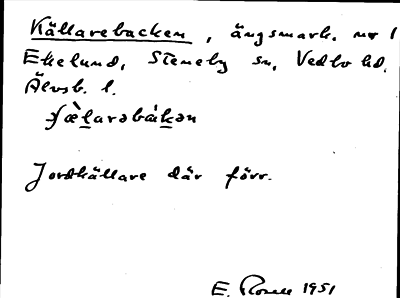 Källarebacken, ängsmark. nr 1
Ekelund, Steneby sn, Vedbo hd.
Älvsb. l.
ɟæ̀larəbàkən
Jordkällare där förr.
E. Rosell 1951